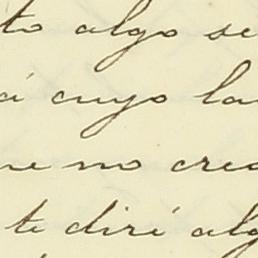 to algo se
á cuyo la
ne no crea
te diré alg